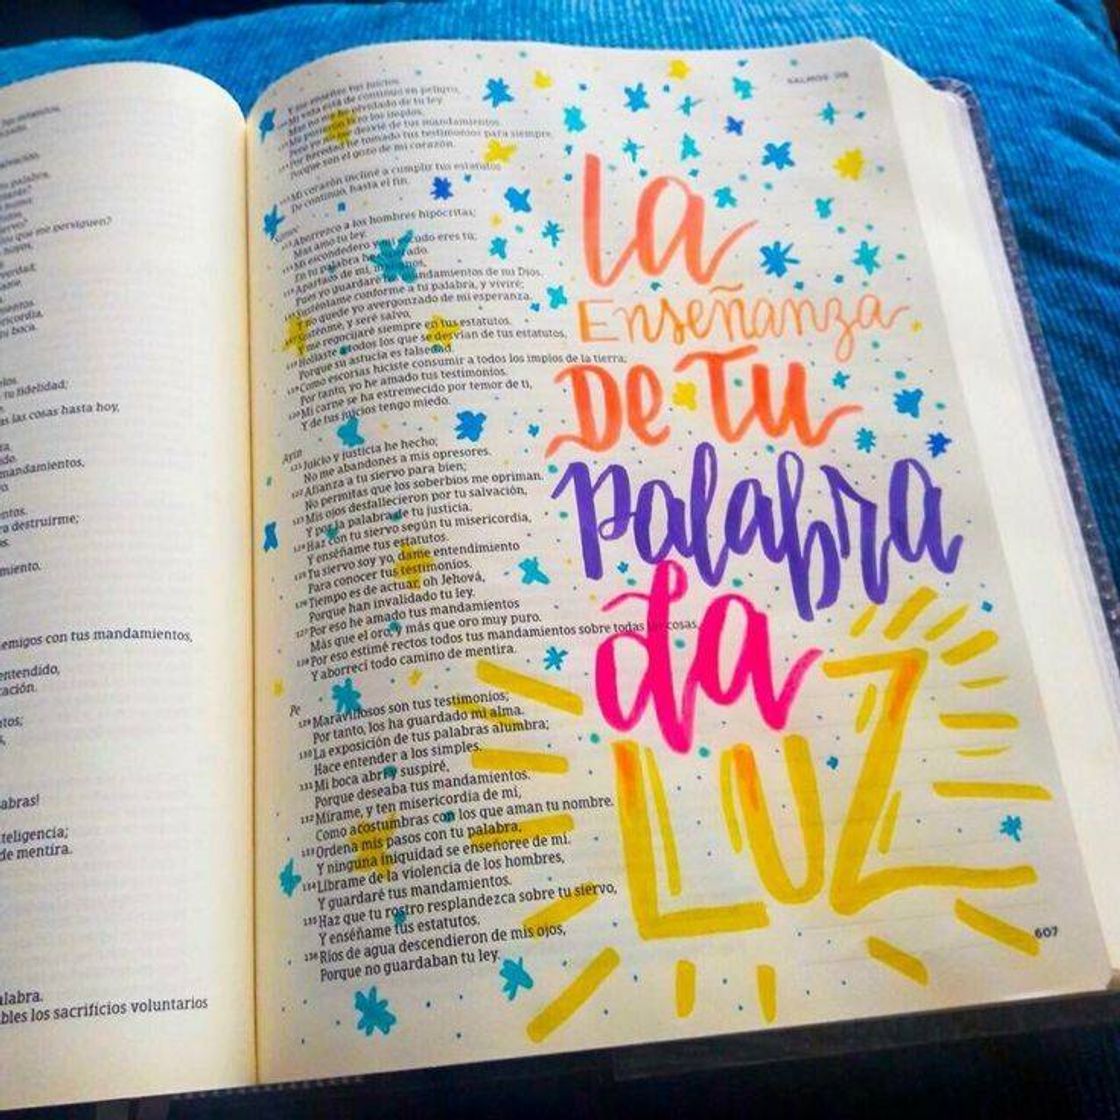 tus mandamientos,
palabra,
que me perviguen?
verdad;
ricordia,
tu boca.
tu fidelidad;
las cosas hasta hoy,
mandamientos,
destruirme;
emigos con tus mandamientos,
entendido,
abras!
teligencia;
de mentira.
alabra.
bles los sacrificios voluntarios
SALMOS 119
Y me enseñes tus juicios.
Mi vida está de continuo en peligro,
Mas no me he olvidado de tu ley.
Me pusieron lazo los impíos,
Pero yo no me desvié de tus mandamientos.
Por heredad he tomado tus testimonios para siempre,
Porque son el gozo de mi corazón.
Mi corazón incliné a cumplir tus estatutos
De continuo, hasta el fin.
Samec
113 Aborrezco a los hombres hipócritas;
Mas amo tu ley.
114 Mi escondedero y mi escudo eres tú;
En tu palabra he esperado.
115 Apartaos de mí, malignos,
Pues yo guardaré los mandamientos de mi Dios.
116 Susténtame conforme a tu palabra, y viviré;
Y no quede yo avergonzado de mi esperanza.
117 Sosténme, y seré salvo,
Y me regocijaré siempre en tus estatutos.
118 Hollaste a todos los que se desvían de tus estatutos,
Porque su astucia es falsedad.
119 Como escorias hiciste consumir a todos los impíos de la tierra;
Por tanto, yo he amado tus testimonios.
120 Mi carne se ha estremecido por temor de ti,
Y de tus juicios tengo miedo.
Ayin
121 Juicio y justicia he hecho;
No me abandones a mis opresores.
122 Afianza a tu siervo para bien;
No permitas que los soberbios me opriman.
123 Mis ojos desfallecieron por tu salvación,
Y por la palabra de tu justicia.
124 Haz con tu siervo según tu misericordia,
Y enséñame tus estatutos.
125 Tu siervo soy yo, dame entendimiento
Para conocer tus testimonios.
126 Tiempo es de actuar, oh Jehová,
Porque han invalidado tu ley.
127 Por eso he amado tus mandamientos
Más que el oro, y más que oro muy puro.
128 Por eso estimé rectos todos tus mandamientos sobre todas las cosas,
Y aborrecí todo camino de mentira.
Pe
129 Maravillosos son tus testimonios;
Por tanto, los ha guardado mi alma.
130 La exposición de tus palabras alumbra;
Hace entender a los simples.
131 Mi boca abrí y suspiré,
Porque deseaba tus mandamientos.
132 Mírame, y ten misericordia de mí,
Como acostumbras con los que aman tu nombre.
133 Ordena mis pasos con tu palabra,
Y ninguna iniquidad se enseñoree de mí.
134 Líbrame de la violencia de los hombres,
Y guardaré tus mandamientos.
135 Haz que tu rostro resplandezca sobre tu siervo,
Y enséñame tus estatutos.
136 Ríos de agua descendieron de mis ojos,
Porque no guardaban tu ley.
La
Enseñanza
De Tu
Palabra
da
LUZ
607